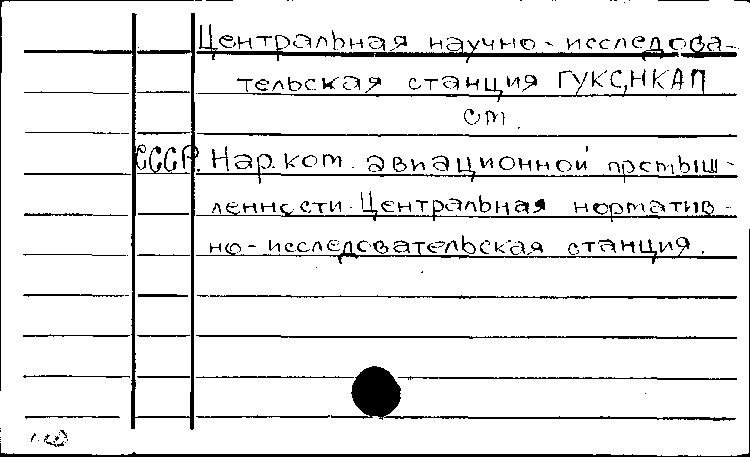 Центральная научно-исследова-
тельская станция ГУКС,НКАП
см.
СССР. Нар.ком. авиационной промыш-
ленности. Центральная норматив-
но-исследовательская станция.